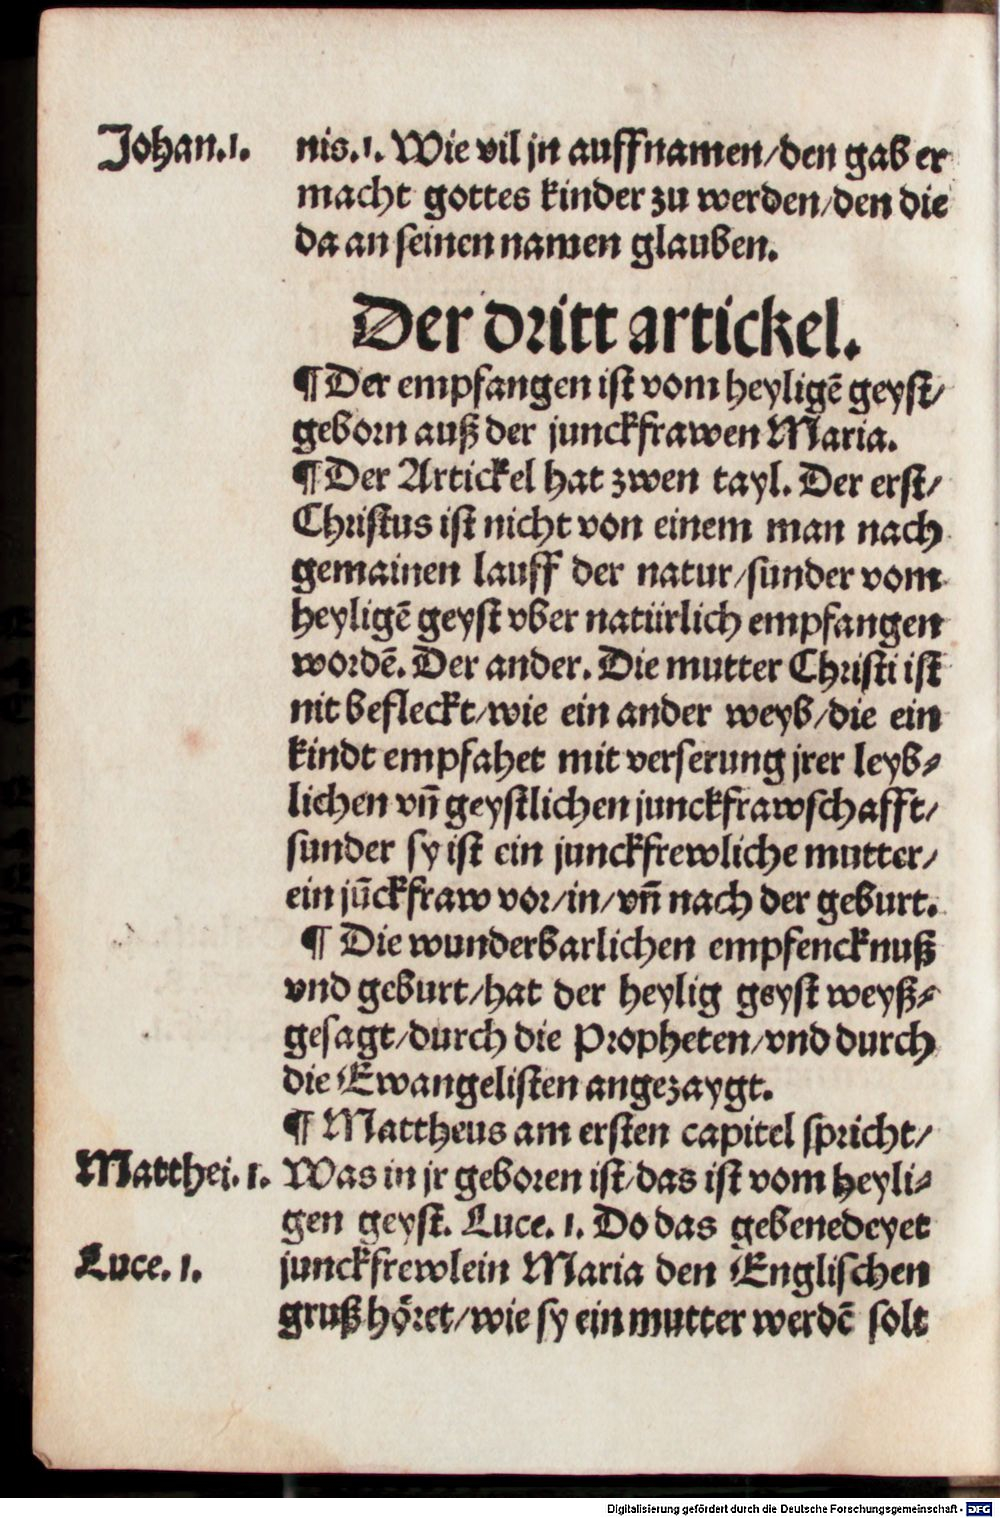 Johan.1. nis.1. Wie vil jn auffnamen/den gab er
macht gottes kinder zu werden/den die
da an seinen namen glauben.
Der dritt artickel.
¶ Der empfangen ist vom heyligē geyst/
geborn auß der junckfrawen Maria.
¶ Der Artickel hat zwen tayl. Der erst/
Christus ist nicht von einem man nach
gemainen lauff der natur/sunder vom
heyligē geyst vber natürlich empfangen
wordē. Der ander. Die mutter Christi ist
nit befleckt/wie ein ander weyb/die ein
kindt empfahet mit verserung jrer leyb⸗
lichen vn̄ geystlichen junckfrawschafft/
sunder sy ist ein junckfrewliche mutter/
ein jūckfraw vor/in/vn̄ nach der geburt.
¶ Die wunderbarlichen empfencknuß
vnd geburt/hat der heylig geyst weyß⸗
gesagt/durch die Propheten/vnd durch
die Ewangelisten angezaygt.
¶ Mattheus am ersten capitel spricht/
Matthei. 1. Was in jr geboren ist/das ist vom heyli⸗
gen geyst. Luce. 1. Do das gebenedeyet
Luce. 1. junckfrewlein Maria den Englischen
gruß höret/wie sy ein mutter werdē solt
Digitalisierung gefördert durch die Deutsche Forschungsgemeinschaft - DFG